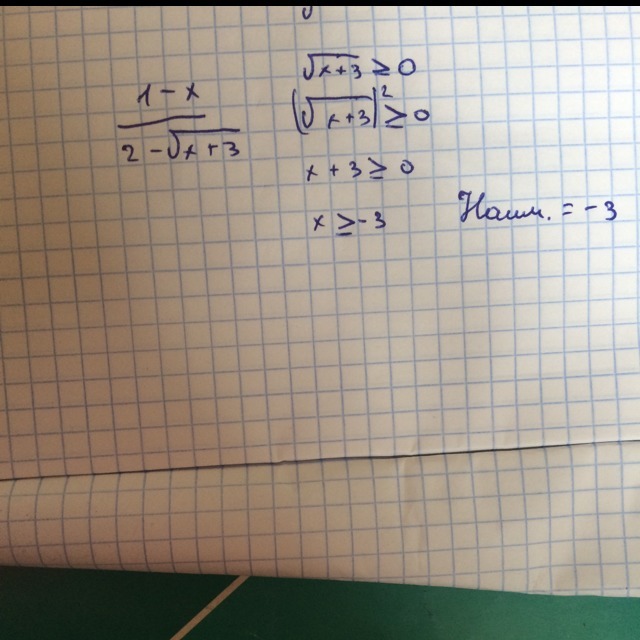 1 - x
2 - √x + 3
√x + 3 ≥ 0
(√x + 3)² ≥ 0
x + 3 ≥ 0
x ≥ -3
Наим. = -3